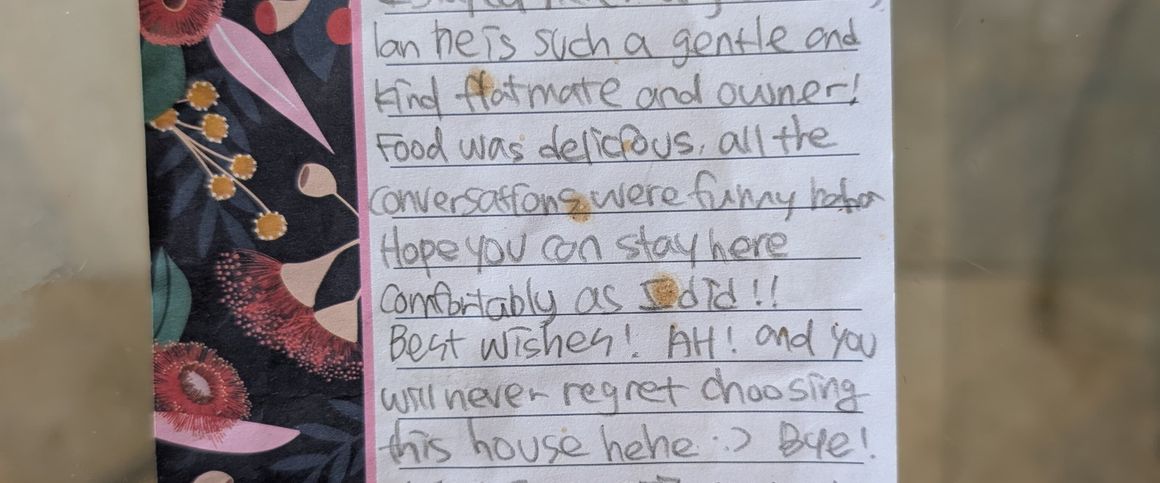 Ian he is such a gentle and
kind flatmate and owner!
Food was delicious, all the
conversations were funny haha
Hope you can stay here
comfortably as I did!!
Best wishes! AH! and you
will never regret choosing
this house hehe :) Bye!